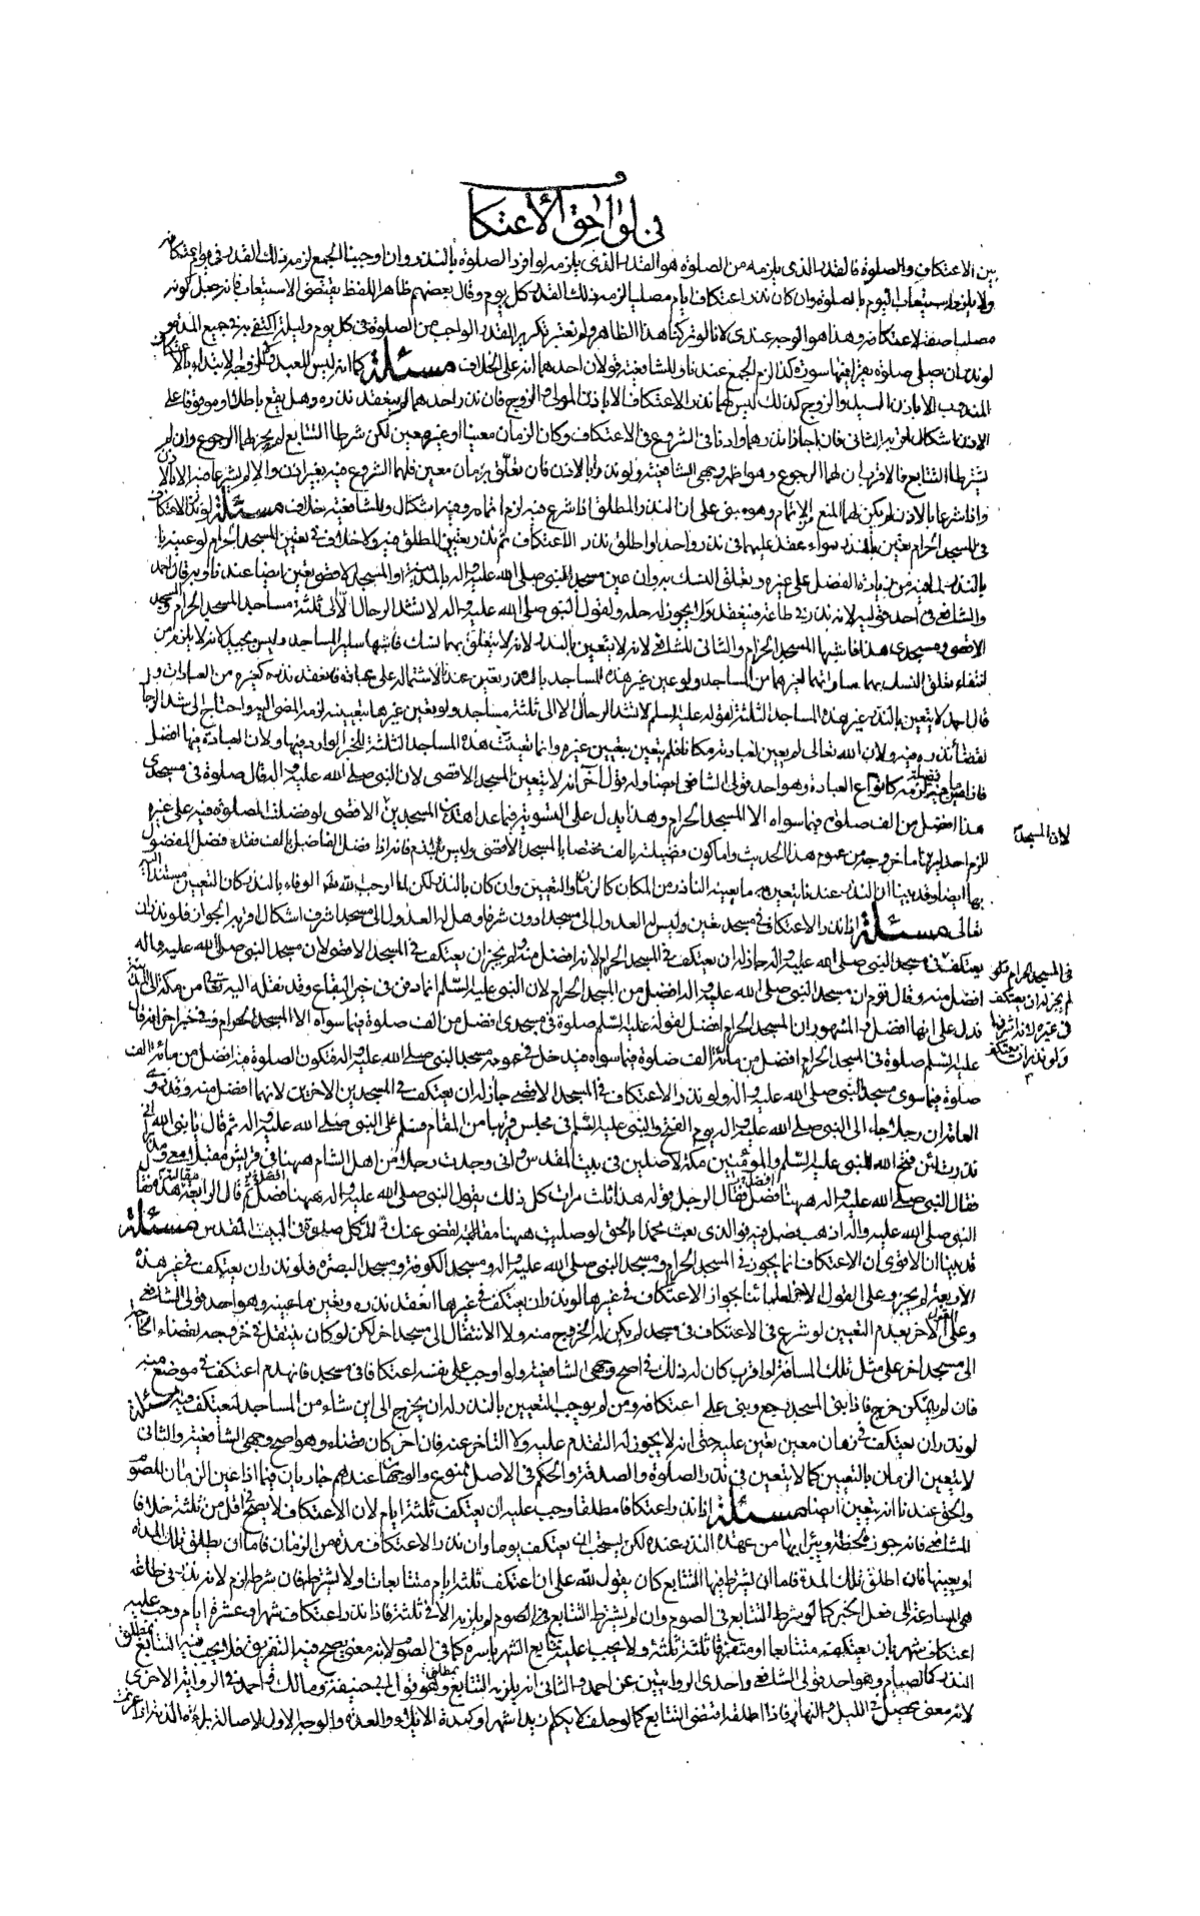 في لواحق الاعتكاف
بين الاعتكاف والصلوة فالقدر الذى يلزمه من الصلوة هو القدر الذى يلزمه لو افرد الصلوة بالنذر وان اوجبنا الجمع لزمه ذلك القدر في يوم اعتكافه
ولا يلزمه استيعاب اليوم بالصلوة وان كان نذر اعتكاف ايام مصليا لزمه ذلك القدر كل يوم وقال بعضهم ظاهر اللفظ يقتضى الاستيعاب فانه جعل كونه
مصليا صفة لاعتكافه وهذا هو الوجه عندى لانا لو تركنا هذا الظاهر ولم نعتبر تكرير القدر الواجب من الصلوة في كل يوم وليلة اكتفى به في جميع المدة
لو نذر ان يصلى صلوة يقرأ فيها سورة كذا لزم الجمع عندنا وللشافعية قولان احدهما انه على الخلاف مسئلة كما انه ليس للعبد والزوجة الابتداء بالاعتكاف
المندوب الا باذن السيد والزوج كذلك ليس لهما نذر الاعتكاف الا باذن المولى والزوج فان نذر احدهما لم ينعقد نذره وهل يقع باطلا او موقوفا على
الاذن اشكال اقربه الثانى فان اجازا نذرهما واذنا في الشروع في الاعتكاف وكان الزمان معينا او غير معين لكن شرطا التتابع لم يجز لهما الرجوع وان لم
يشترطا التتابع فالاقرب ان لهما الرجوع وهو اظهر وجهى الشافعية ولو نذرا بالاذن فان تعلق بزمان معين فلهما الشروع فيه بغير اذن والا لم يشرعا فيه الا بالاذن
واذا شرعا بالاذن لم يكن لهما المنع من الاتمام وهو مبنى على ان النذر المطلق اذا شرع فيه لزم اتمامه وفيه اشكال وللشافعية خلاف مسئلة لو نذر الاعتكاف
في المسجد الحرام تعين بالنذر سواء عقد عليهما في نذر واحد او اطلق نذر الاعتكاف ثم نذر تعيين المطلق فيه ولا خلاف في تعين المسجد الحرام لو عينه
بالنذر لما فيه من زيادة الفضل على غيره وتعلق النسك به وان عين مسجد النبى صلى الله عليه واله بالمدينة او المسجد الاقصى تعين ايضا عندنا وبه قال احمد
والشافعى في احد قوليه لانه نذر في طاعة فينعقد ولا يجوز له حله ولقول النبى صلى الله عليه واله لا تشد الرحال الا الى ثلثة مساجد المسجد الحرام والمسجد
الاقصى ومسجدى هذا فاشبها المسجد الحرام والثانى للشافعى انه لا يتعين بالنذر لانه لا يتعلق بهما نسك فاشبها ساير المساجد وليس بجيد لانه لا يلزم من
انتفاء تعلق النسك بهما مساواتهما لغيرهما من المساجد ولو عين غير هذه المساجد بالنذر تعين عندنا لاشتماله على عبادة فانعقد نذره كغيره من العبادات و
قال احمد لا يتعين بالنذر غير هذه المساجد الثلثة لقوله عليه السلم لا تشد الرحال الا الى ثلثة مساجد ولو تعين غيرها بتعيينه لزمه المضى اليه واحتاج الى شد الرحال
لقضاء نذره فيه ولان الله تعالى لم يعين لعبادته مكانا فلم يتعين بتعيين غيره وانما تعينت هذه المساجد الثلثة للخبر الوارد فيها ولان العبادة فيها افضل
فاذا عين ما فيه فضيلة لزمته كانواع العبادة وهو احد قولى الشافعى ايضا وله قول اخر انه لا يتعين المسجد الاقصى لان النبى صلى الله عليه واله قال صلوة في مسجدى
هذا افضل من الف صلوة فيما سواه الا المسجد الحرام وهذا يدل على التسوية فيما عدا هذين المسجدين لان المسجد الاقصى لو فضلت الصلوة فيه على غيره
للزم احد امرين اما خروجه من عموم هذا الحديث واما كون فضيلته بالف مختصا بالمسجد الاقصى وليس بلازم فانه اذا فضل الفاضل بالف فقد فضل المفضول
بها ايضا وقد بينا ان النذر عندنا يتعين به ما يعينه الناذر من المكان كالزمان والتعيين وان كان بالنذر لكن لما اوجب الله تعالى الوفاء بالنذر كان التعيين مستندا اليه
تعالى مسئلة اذا نذر الاعتكاف في مسجد تعين وليس له العدول الى مسجد ادون شرفا وهل له العدول الى مسجد اشرف اشكال اقربه الجواز فلو نذر ان
يعتكف في مسجد النبى صلى الله عليه واله جاز له ان يعتكف في المسجد الحرام لانه افضل منه ولم يجز ان يعتكف في المسجد الاقصى لان مسجد النبى صلى الله عليه واله
افضل منه وقال قوم ان مسجد النبى صلى الله عليه واله افضل من المسجد الحرام لان النبى عليه السلم انما دفن في خير البقاع وقد نقله الله تعالى من مكة الى المدينة
فدل على انها افضل والمشهور ان المسجد الحرام افضل لقوله عليه السلم صلوة في مسجدى افضل من الف صلوة فيما سواه الا المسجد الحرام وفي خبر اخر انه قال
عليه السلم صلوة في المسجد الحرام افضل من مائة الف صلوة فيما سواه فيدخل في عمومه مسجد النبى صلى الله عليه واله فتكون الصلوة فيه افضل من مائة الف
صلوة فيما سوى مسجد النبى صلى الله عليه واله ولو نذر الاعتكاف في المسجد الاقصى جاز له ان يعتكف في المسجدين الاخرين لانهما افضل منه وقد روى
العامة ان رجلا جاء الى النبى صلى الله عليه واله يوم الفتح والنبى عليه السلم في مجلس قريبا من المقام فسلم على النبى صلى الله عليه واله ثم قال يا نبى الله انى
نذرت لئن فتح الله للنبى عليه السلم والمؤمنين مكة لاصلين في بيت المقدس وانى وجدت رجلا من اهل الشام ههنا في قريش مقبلا معى ومدبرا
فقال النبى صلى الله عليه واله ههنا فصل فقال الرجل قوله هذا ثلث مرات كل ذلك يقول النبى صلى الله عليه واله ههنا فصل ثم قال الرابعة مقالته هذه فقال
النبى صلى الله عليه واله اذهب فصل فيه فوالذى بعث محمدا بالحق لو صليت ههنا لقضى عنك ذلك كل صلوة في البيت المقدس مسئلة
قد بينا ان الاقوى ان الاعتكاف انما يجوز في المسجد الحرام ومسجد النبى صلى الله عليه واله ومسجد الكوفة ومسجد البصرة فلو نذر ان يعتكف في غير هذه
الاربعة لم يجز وعلى القول الاخر لعلمائنا جواز الاعتكاف في غيرها لو نذر ان يعتكف في غيرها انعقد نذره وتعين ما عينه وهو احد قولى الشافعى
وعلى القول الاخر بعدم التعيين لو شرع في الاعتكاف في مسجد لم يكن له الخروج منه ولا الانتقال الى مسجد اخر لكن لو كان ينتقل في خروجه لقضاء الحاجة
الى مسجد اخر على مثل تلك المسافة او اقرب كان له ذلك في اصح وجهى الشافعية ولو اوجب على نفسه اعتكافا في مسجد فانهدم اعتكف في موضع منه
فان لم يتمكن خرج فاذا بنى المسجد رجع وبنى على اعتكافه ومن لم يوجب التعيين بالنذر له ان يخرج الى اين شاء من المساجد ليعتكف فيه مسئلة
لو نذر ان يعتكف في زمان معين تعين عليه حتى انه لا يجوز له التقدم عليه ولا التاخر عنه فان اخر كان قضاء وهو اصح وجهى الشافعية والثانى
لا يتعين الزمان بالتعيين كما لا يتعين في نذر الصلوة والصدقة والحكم في الاصل ممنوع والوجهان عندهم جاريان فيما اذا عين الزمان للصوم
والحق عندنا انه يتعين ايضا مسئلة اذا نذر اعتكافا مطلقا وجب عليه ان يعتكف ثلثة ايام لان الاعتكاف لا يصح في اقل من ثلثة خلافا
للشافعى فانه جوز لحظة ويبرأ بها من عهدة النذر عنده لكن يستحب ان يعتكف يوما وان نذر الاعتكاف مدة من الزمان فاما ان يطلق تلك المدة
او يعينها فان اطلق تلك المدة فاما ان يشترط فيها التتابع كان يقول لله على ان اعتكف ثلثة ايام متتابعات او لا يشترط فان شرط لزم لانه نذر في طاعة
هى المسارعة الى فعل الخير كما لو شرط التتابع في الصوم وان لم يشترط التتابع في الصوم لم يلزمه الا في ثلثة فاذا نذر اعتكاف شهر او عشرة ايام وجب عليه
اعتكاف شهر بان يعتكفه متتابعا او متفرقا ثلثة ثلثة ولا يجب عليه تتابع الشهر باسره كما في الصوم لانه معنى يصح فيه التفريق فلا يجب فيه التتابع بمطلق
النذر كالصيام وهو احد قولى الشافعى واحدى الروايتين عن احمد والثانى انه يلزمه التتابع بمطلقه وهو قول ابى حنيفة ومالك واحمد في الرواية الاخرى
لانه معنى يحصل في الليل والنهار فاذا اطلقه اقتضى التتابع كما لو حلف لا يكلم زيدا شهرا وكمدة الايلاء والعدة والوجه الاول لاصالة براءة الذمة
لان المسجد
في المسجد الحرام
لم يجز له ان يعتكف
في غيره لانه اشرفها
ولو نذر ان يعتكف